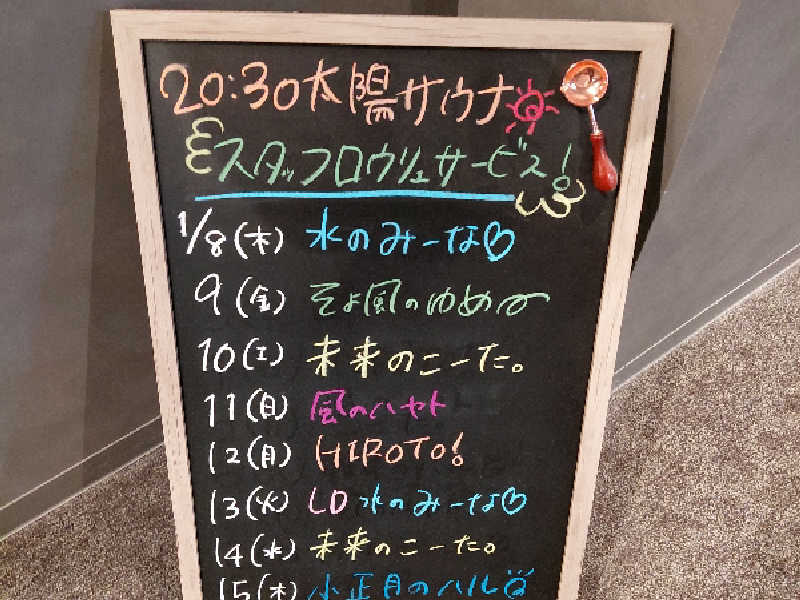 20:30太陽サウナ
スタッフロウリュサービス!
1/8(木) 水のみーな♡
9(金) そよ風のゆめ〜
10(土) 未来のこーた。
11(日) 風のハヤト
12(月) HIROTO!
13(火) LD 水のみーな♡
14(水) 未来のこーた。
15(木) 小正月のハル